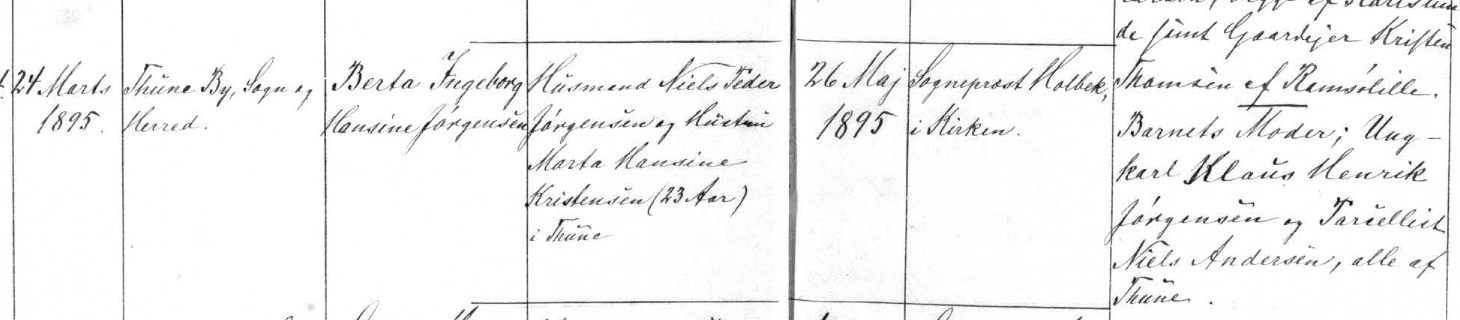 de samt Gaardejer Kristen
Thomsen af Ramsölille.
24 Marts
1895.
Thune By, Sogn og
Herred.
Berta Ingeborg
Hansine Jörgensen
Husmand Niels Peder
Jörgensen og Hustru
Marta Hansine
Kristensen (23 Aar)
i Thune
26 Maj
1895
Sognepræst Holbek,
i Kirken.
Barnets Moder; Ung-
karl Klaus Henrik
Jörgensen og Parcellist
Niels Andersen, alle af
Thune.